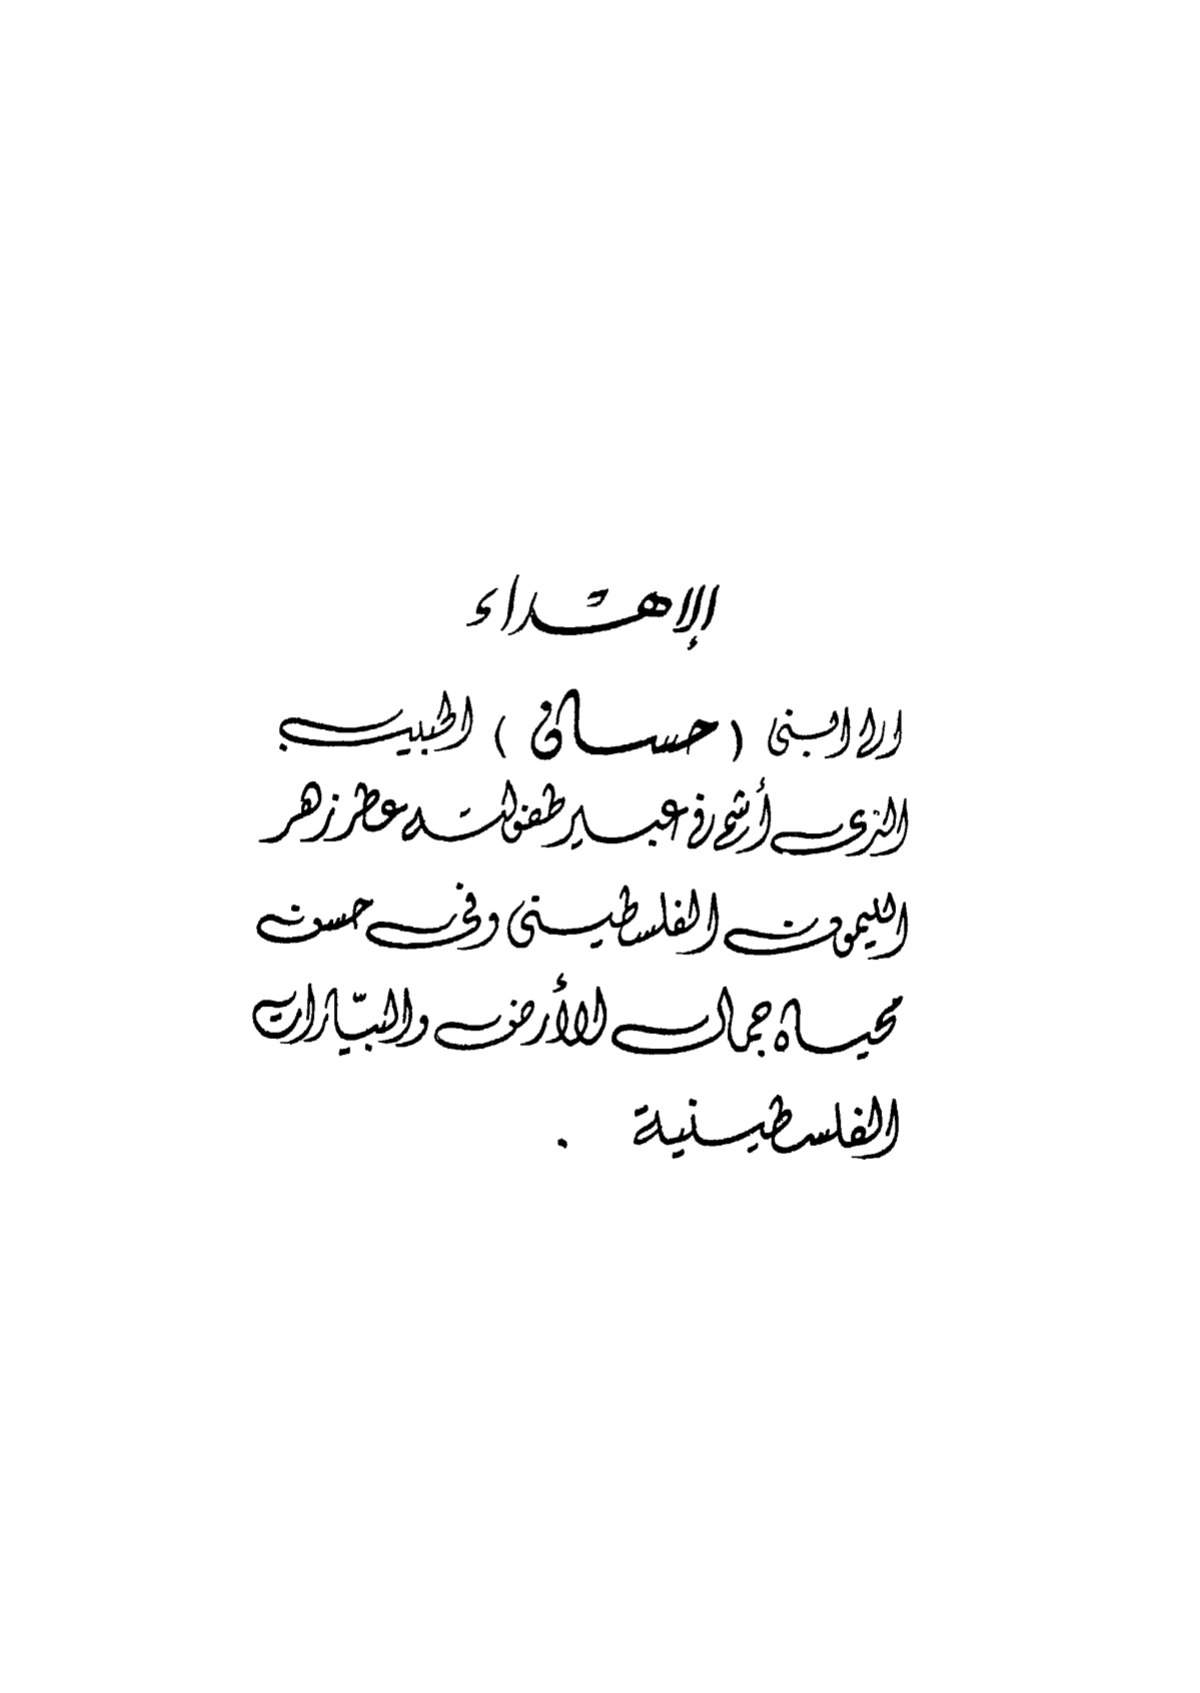 الإهداء
الى ابنى ( حسان ) الحبيب
الذى أشم فى عبير طفولته عطر زهر
الليمون الفلسطينى وفى حسن
محياه جمال الأرض والبيّارات
الفلسطينية .